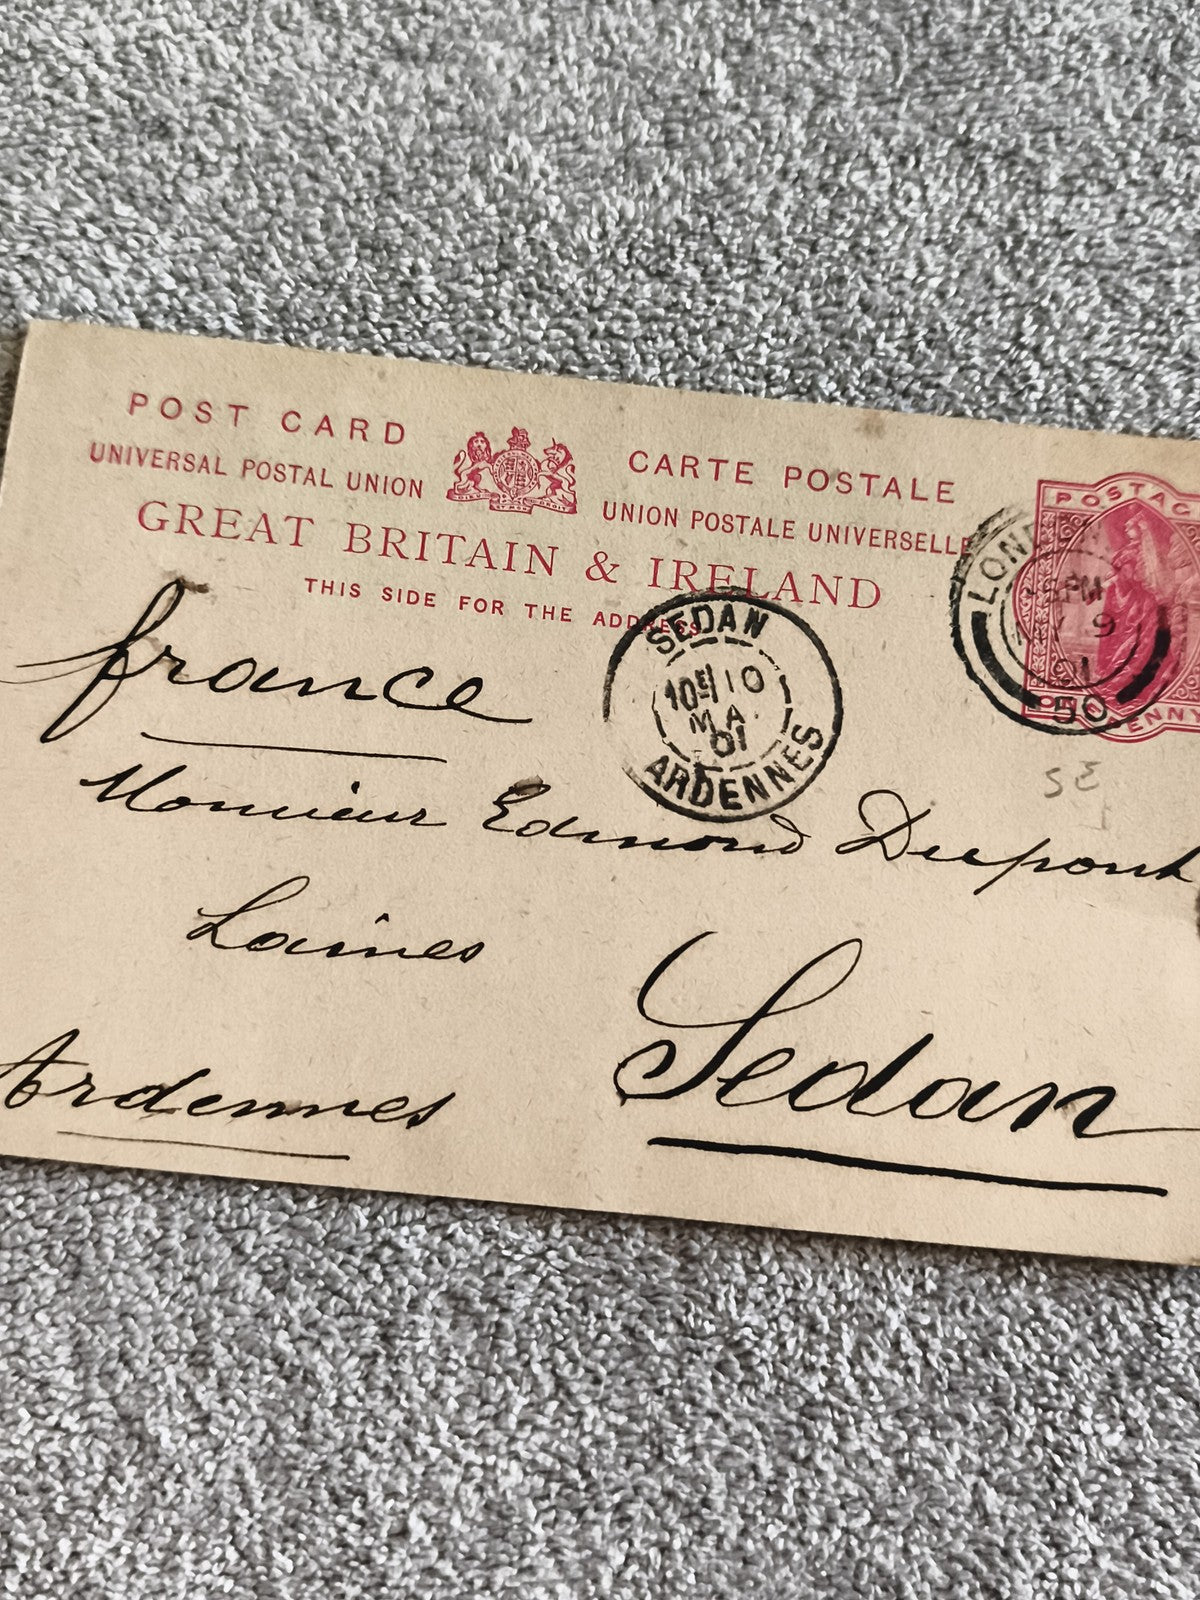 POST CARD
UNIVERSAL POSTAL UNION
CARTE POSTALE
UNION POSTALE UNIVERSELLE
GREAT BRITAIN & IRELAND
THIS SIDE FOR THE ADDRESS
POSTAG
ONE PENNY
LON
PM
9
01
50
SEDAN
10E 10
MA
01
ARDENNES
france
SE
Monsieur Edmond Dupont
Laines
Sedan
Ardennes